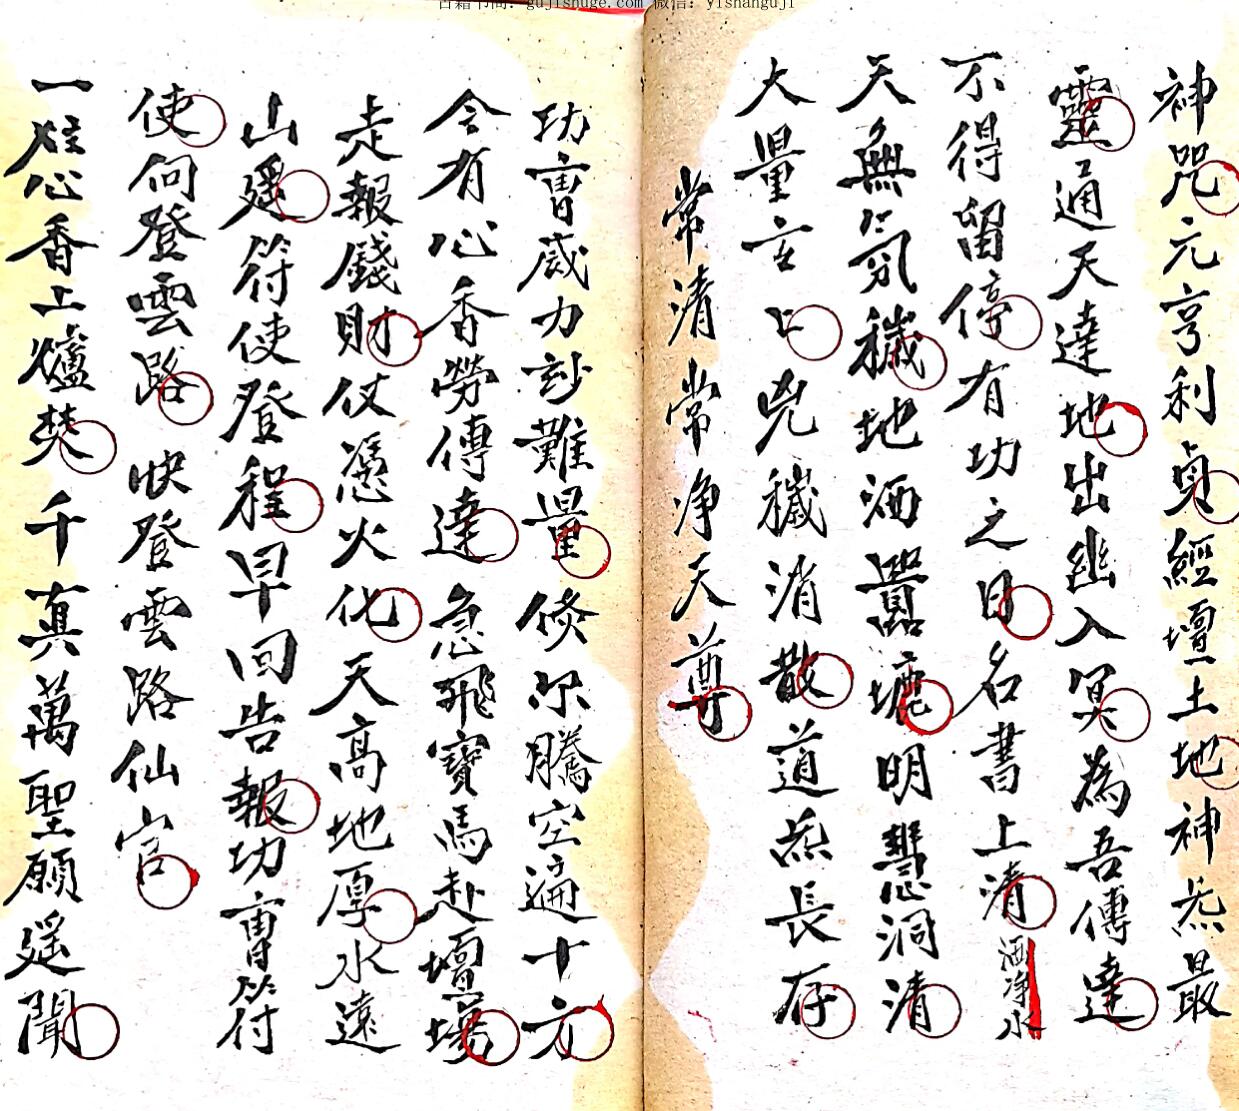 gujishuge.com 微信: yishanguji
神咒元亨利貞經壇土地神炁最
靈通天達地出幽入冥為吾傳達
不得留停有功之日名書上清
洒净水
天無氛穢地洒囂塵明慧洞清
大量玄〻兇穢消散道炁長存
常清常净天尊
功曹威力玅難量倐尔騰空遍十方
今有心香勞傳達急飛寳馬赴壇場
走報錢財仗憑火化天高地厚水遠
山遥符使登程早回告報功曹符
使何登雲路快登雲路仙官
一炷心香上爐焚千真萬聖願遥聞